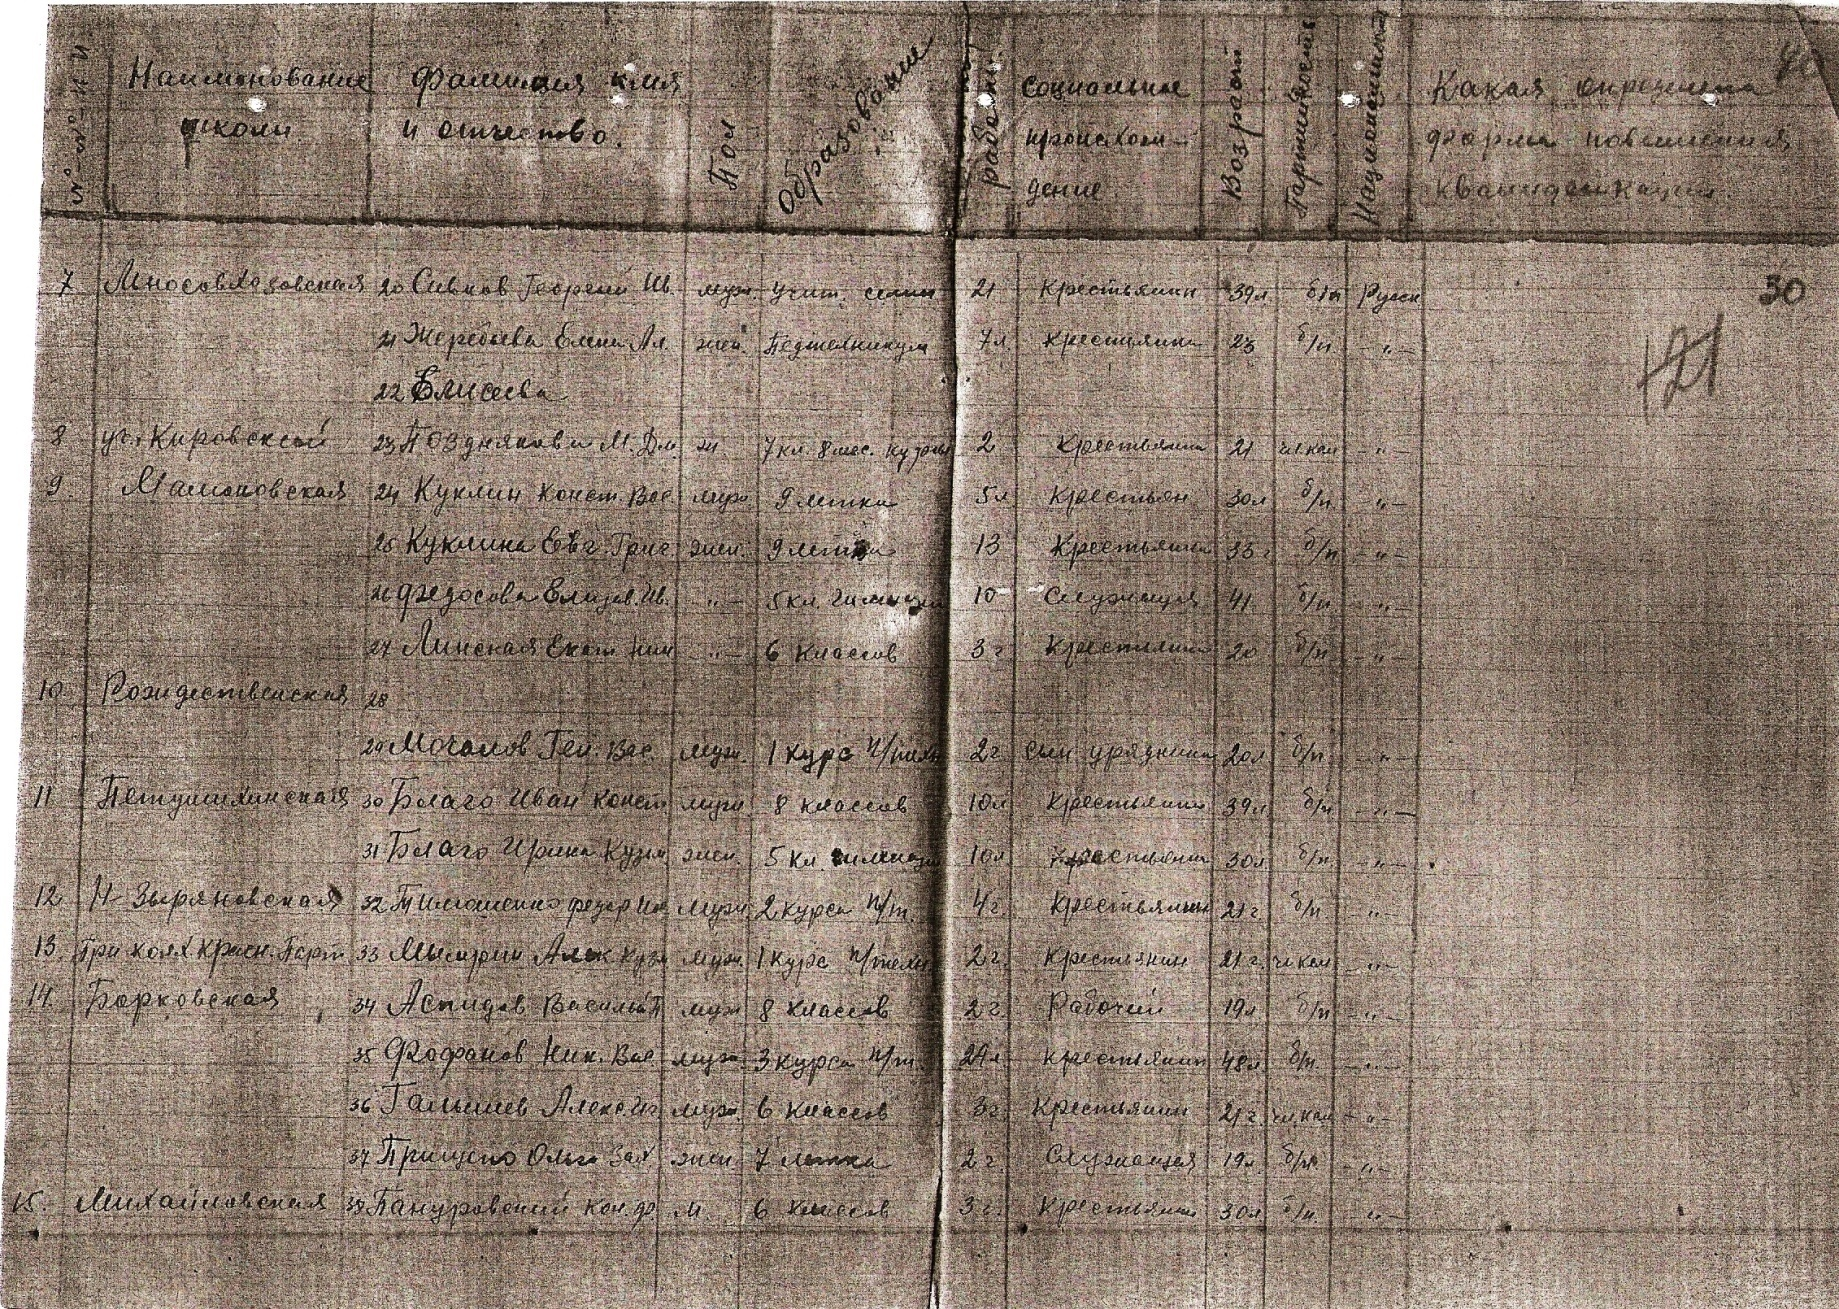 № № п/п Наименование школы Фамилия имя и отчество. Пол Образование работы Социальное происхождение Возраст Партийность Национальность Какая форма повышения квалификации
40
7 20 Сивков Георгий Ив. муж. учит. семин 21 Крестьянин 39л б/п Русск 30
21 Жеребцова Елена Ал. жен. Педтехникум 7л Крестьянка 23 б/п -"-
22 Елисеева
8 Кировской 23 Позднякова М. Дм. ж 7 кл. 8 мес. курсы 2 Крестьянка 21 чл.кан -"-
9. Мамоновская 24 Куклин Конст. Вас муж. 9 летка 5л Крестьян 30л б/п -"-
25 Куклина Евг. Григ. жен. 9 летка 13 Крестьянка 33г б/п -"-
26 Федосова Елизав. Ив. -"- 5 кл. гимназии 10 Служащая 41 б/п -"-
27 Линская Екат. Ник -"- 6 классов 3г Крестьянка 20 б/п -"-
10. Рождественская 28
29 Мочалов Ген. Вас. муж. 1 курс п/техн 2г сын урядника 20л б/п -"-
11 Петушихинская 30 Благо Иван Конст муж 8 классов 10л Крестьянин 39л б/п -"-
31 Благо Ирина Кузм жен. 5 кл. гимназии 10л Крестьянка 30л б/п. -"-
12 Н-Зыряновская 32 Тимошенко Федор Ив муж 2 курса п/т. 4г. Крестьянин 21г б/п -"-
13. При колх Красн. Парт. 33 Алек Кузм муж. 1 курс п/техн. 2г. Крестьянин 21г. чл.кан -"-
14. Борковская 34 Аспидов Василий П муж 8 классов 2г. Рабочий 19л б/п -"-
35 Фофанов Ник. Вас. муж. 3 курса п/т. 24л Крестьянин 48л б/п. -"-
36 Галышев Алекс. Иг. муж. 6 классов 3г. Крестьянин 21г. чл.кан -"-
37 Прищепо Ольга Зах. жен 7 летка 2г. Служащая 19л. б/п. -"-
15. Михайловская 38 Пануровский Кон. Ф. м. 6 классов 3г. Крестьянин 30л б/п. -"-